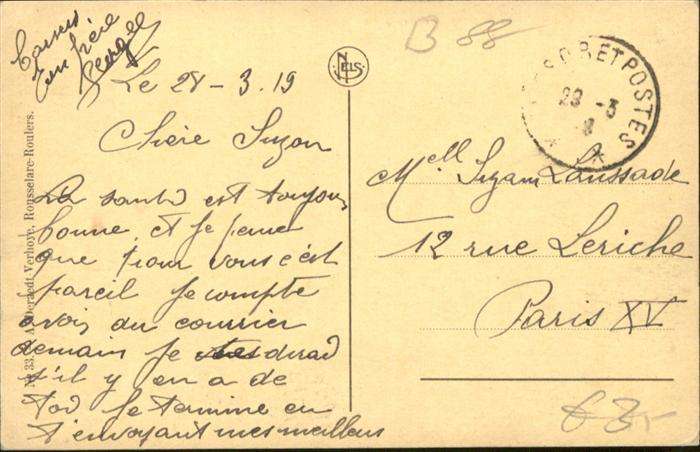 Le 28 - 3. 19
Chère Suzon
La santé est toujours
bonne, et je pense
que pour vous c'est
pareil je compte
avoir du courrier
demain je te dirai
s'il y en a de
toi je termine en
t'envoyant mes meilleurs
Ton frère
N° 33. A. Deraedt-Verhoye, Rousselare-Roulers.
NELS
B 88
TRESOR ET POSTES
28 - 3
Melle Suzan Laussade
12 rue Leriche
Paris XV